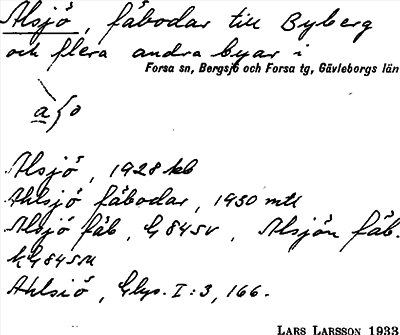 Alsjö, fäbodar till Byberg
och flera andra byar i
Forsa sn, Bergsjö och Forsa tg, Gävleborgs län
a{o
Alsjö, 1928 kb
Ahlsjö fäbodar, 1930 mtl
Alsjö fäb, G 845v, Alsjön fäb.
G 845
Ahlsiö, Glys. I:3, 166.
LARS LARSSON 1933